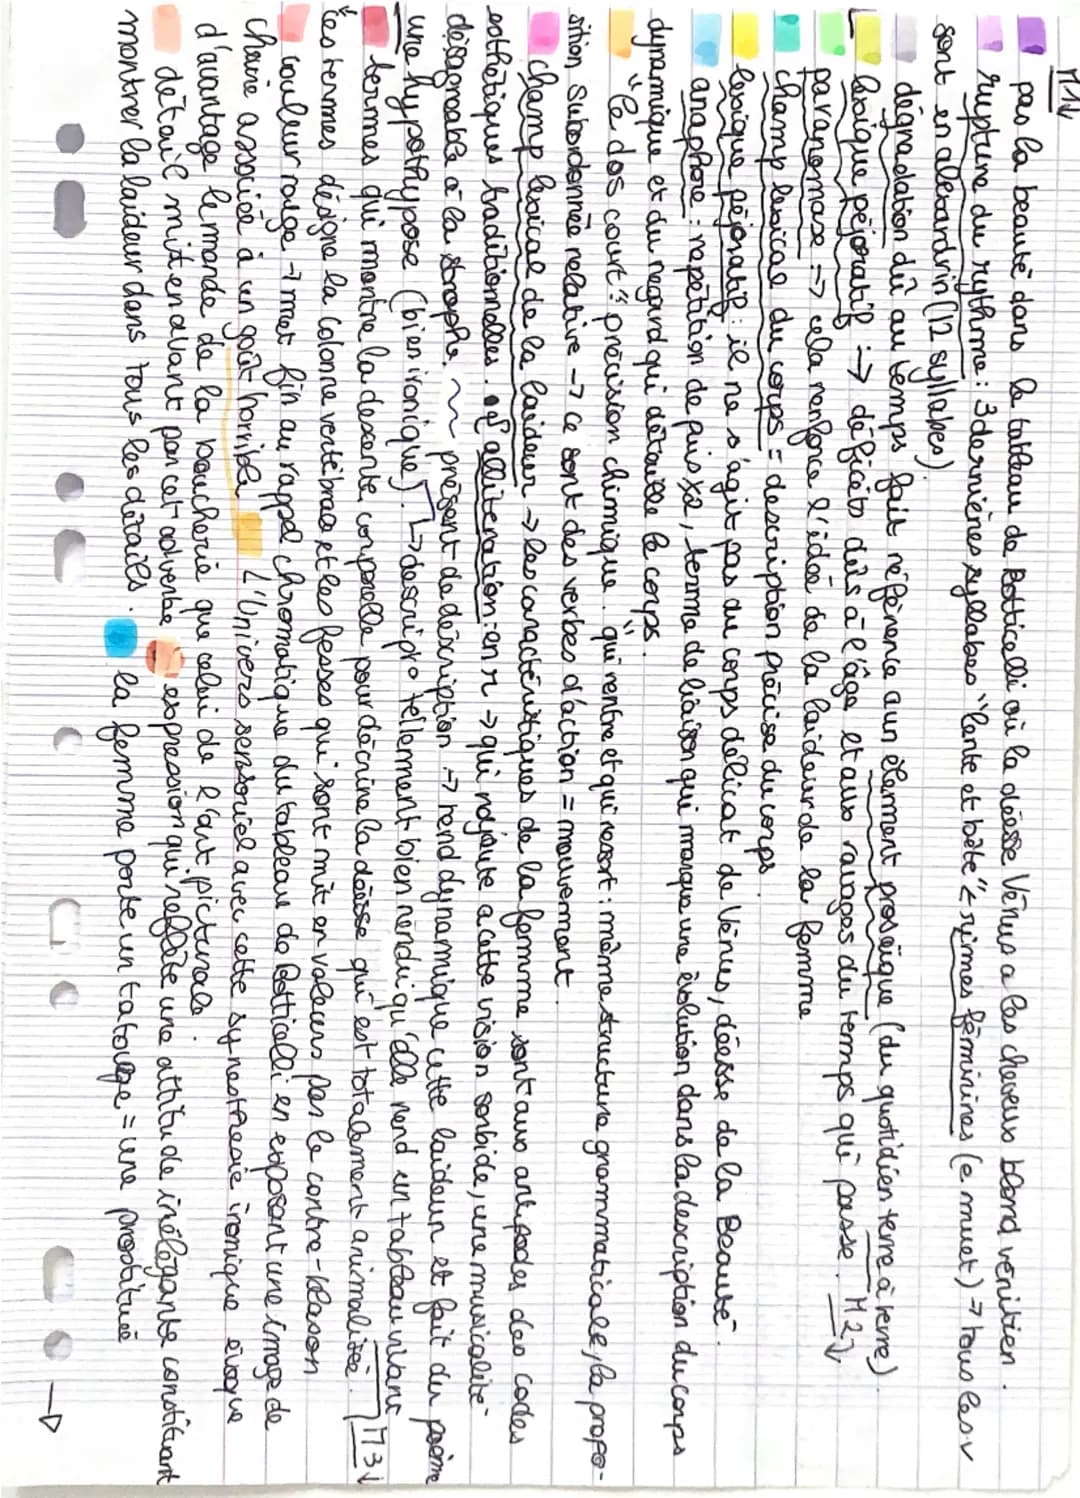 M1↓
pas la beauté dans le tableau de Botticelli où la déesse Vénus a les cheveux blond vénitien.
rupture du rythme : 3 dernières syllabes "lente et bête" ≤ rimes féminines (e muet) → tous les v
sont en alexandrin (12 syllabes)
dégradation dû au temps fait référence a un élément prosaïque (du quotidien terre à terre).
lexique péjoratif : → déficits dûs à l'âge et aux ravages du temps qui passe. M2↓
paranomase => cela renforce l'idée de la laideur de la femme
champ lexical du corps = description précise du corps.
lexique péjoratif : il ne s'agit pas du corps délicat de Vénus, déesse de la Beauté.
anaphore : répétition de puis x2, terme de liaison qui marque une évolution dans la description du corps
dynamique et du regard qui détaille le corps.
"le dos court" : précision chimique. "qui rentre et qui ressort" : même structure grammaticale, la propo-
sition subordonnée relative → ce sont des verbes d'action = mouvement.
champ lexical de la laideur → les caractéristiques de la femme sont aux antipodes des codes
esthétiques traditionnelles. allitération en r → qui rajoute a cette vision sordide, une musicalité
désagréable à la strophe. ~~ présent de description → rend dynamique cette laideur et fait du poème
une hypothypose (bien ironique) ↳ descriptio tellement bien rendu qu'elle rend un tableau vivant
termes qui montre la descente corporelle pour décrire la déesse qui est totalement animalisée. M3↓
les termes désigne la colonne vertébrale et les fesses qui sont mit en valeurs par le contre-blason
couleur rouge → met fin au rappel chromatique du tableau de Botticelli en exposant une image de
chaire associée à un goût horrible L'Univers sensoriel avec cette synesthésie ironique évoque
d'avantage le monde de la boucherie que celui de l'art picturale.
détail mit en avant par cet adverbe expression qui reflète une attitude inélégante constituant
montrer la laideur dans tous les détails. la femme porte un tatouage = une prostituée
→